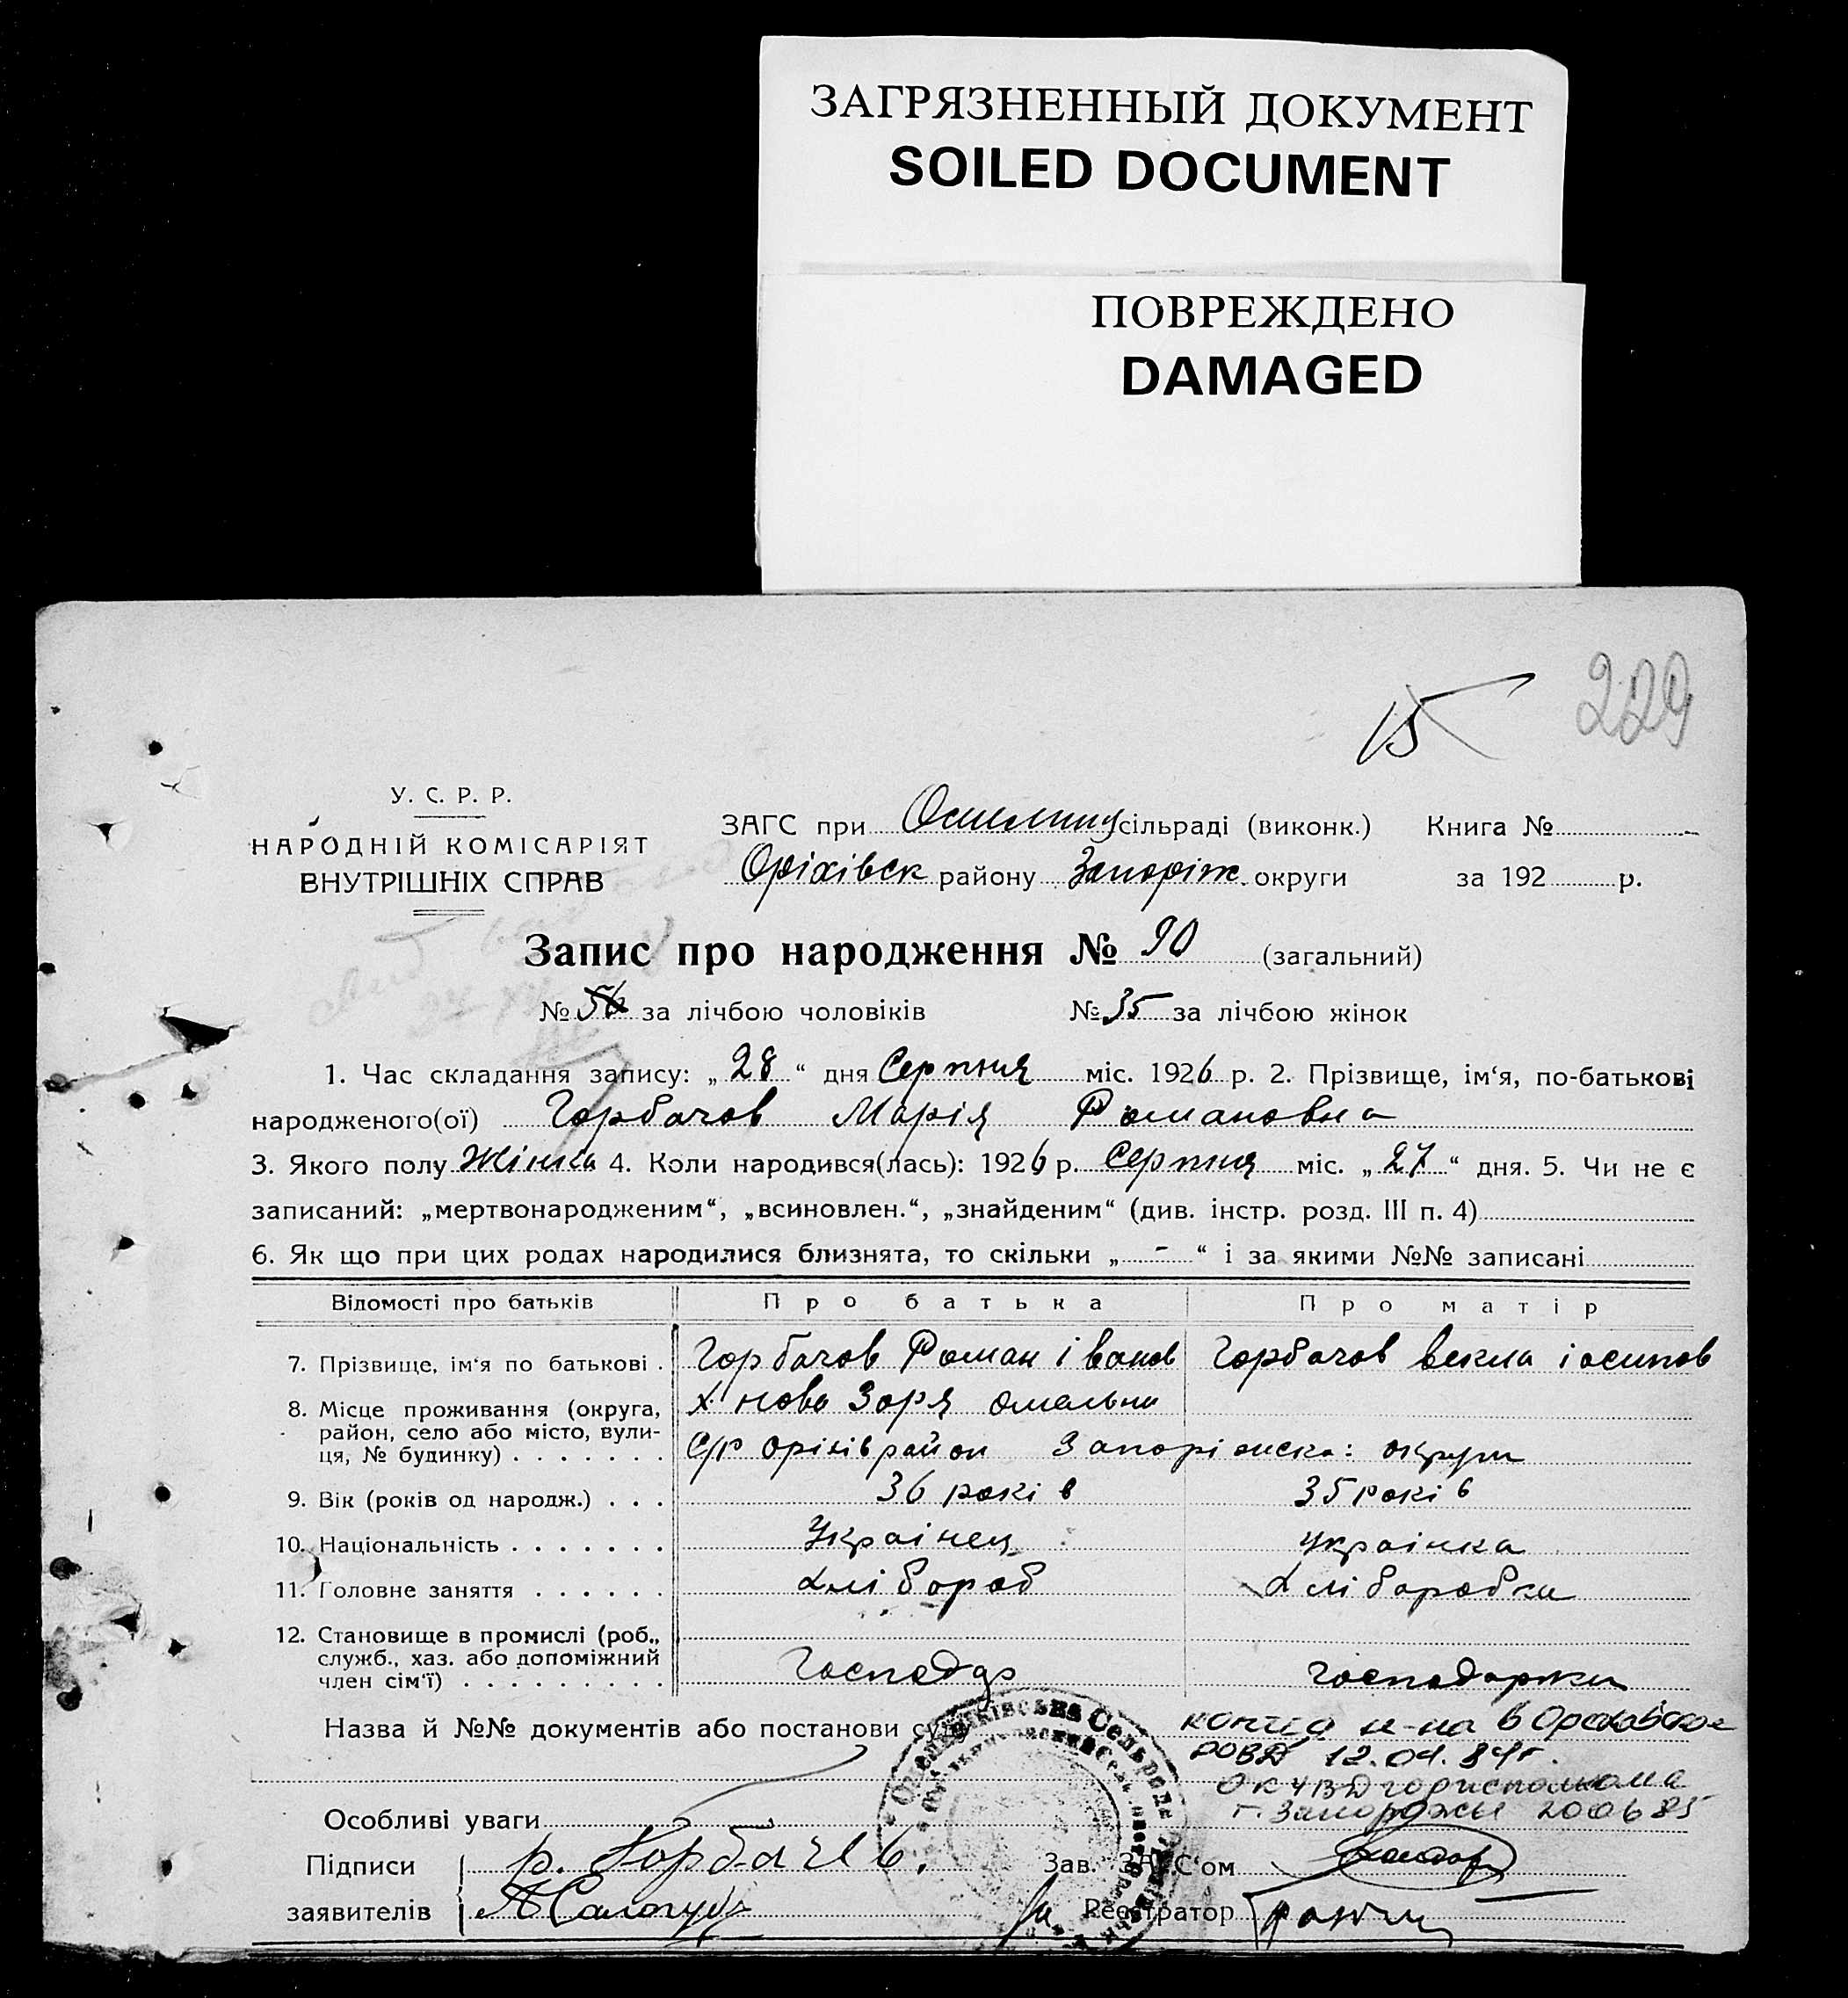 ЗАГРЯЗНЕННЫЙ ДОКУМЕНТ
SOILED DOCUMENT
ПОВРЕЖДЕНО
DAMAGED
229
15
У. С. Р. Р.
НАРОДНІЙ КОМІСАРІЯТ
ВНУТРІШНІХ СПРАВ
ЗАГС при сільраді (виконк.) Книга №
Оріхівск району Запоріж. округи за 192 р.
Запис про народження № 90 (загальний)
№ 56 за лічбою чоловіків № 35 за лічбою жінок
1. Час складання запису: „ 28 “ дня Серпня міс. 1926 р. 2. Прізвище, ім‘я, по-батькові
народженого(ої) Горбачов Марія Романовна
3. Якого полу Жінка 4. Коли народився(лась): 1926 р. Серпня міс. „ 27 “ дня. 5. Чи не є
записаний: „мертвонародженим“, „всиновлен.“, „знайденим“ (див. інстр. розд. III п. 4)
6. Як що при цих родах народилися близнята, то скільки „ - “ і за якими №№ записані
Відомості про батьків Про батька Про матір
7. Прізвище, ім‘я по батькові . Горбачов Роман іванов Горбачов векла іосипов
8. Місце проживання (округа, х. нова Зоря омельни
район, село або місто, вули-
ця, № будинку) . . . . . . . с/р оріхів район Запоріжска: округи
9. Вік (років од народж.) . . . 36 років 35 років
10. Національність . . . . . . . Українец українка
11. Головне заняття . . . . . . хлібороб хліборобка
12. Становище в промислі (роб.,
служб., хаз. або допоміжний
член сім‘ї) . . . . . . . . . Господар Господарка
Назва й №№ документів або постанови суду
копия н-на в Ореховское
РОВД 12.04.84г.
горисполкома
г. Запорожье 200685
Особливі уваги
Підписи р. Горбачев. Зав. ЗАГС‘ом
заявителів Реєстратор